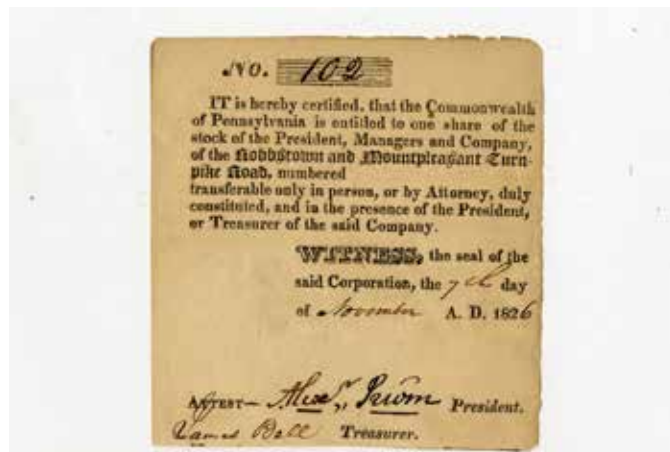 NO. 102
IT is hereby certified, that the Commonwealth
of Pennsylvania is entitled to one share of the
stock of the President, Managers and Company,
of the Robbstown and Mountpleasant Turn-
pike Road, numbered
transferable only in person, or by Attorney, duly
constituted, and in the presence of the President,
or Treasurer of the said Company.
WITNESS, the seal of the
said Corporation, the 7th day
of November A. D. 1826
ATTEST— Alexr. President.
James Bell Treasurer.